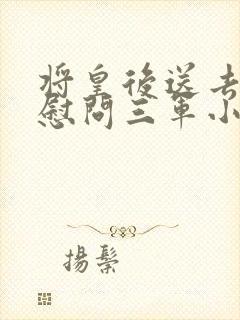 將皇後送去
慰問三軍小
揚鬃